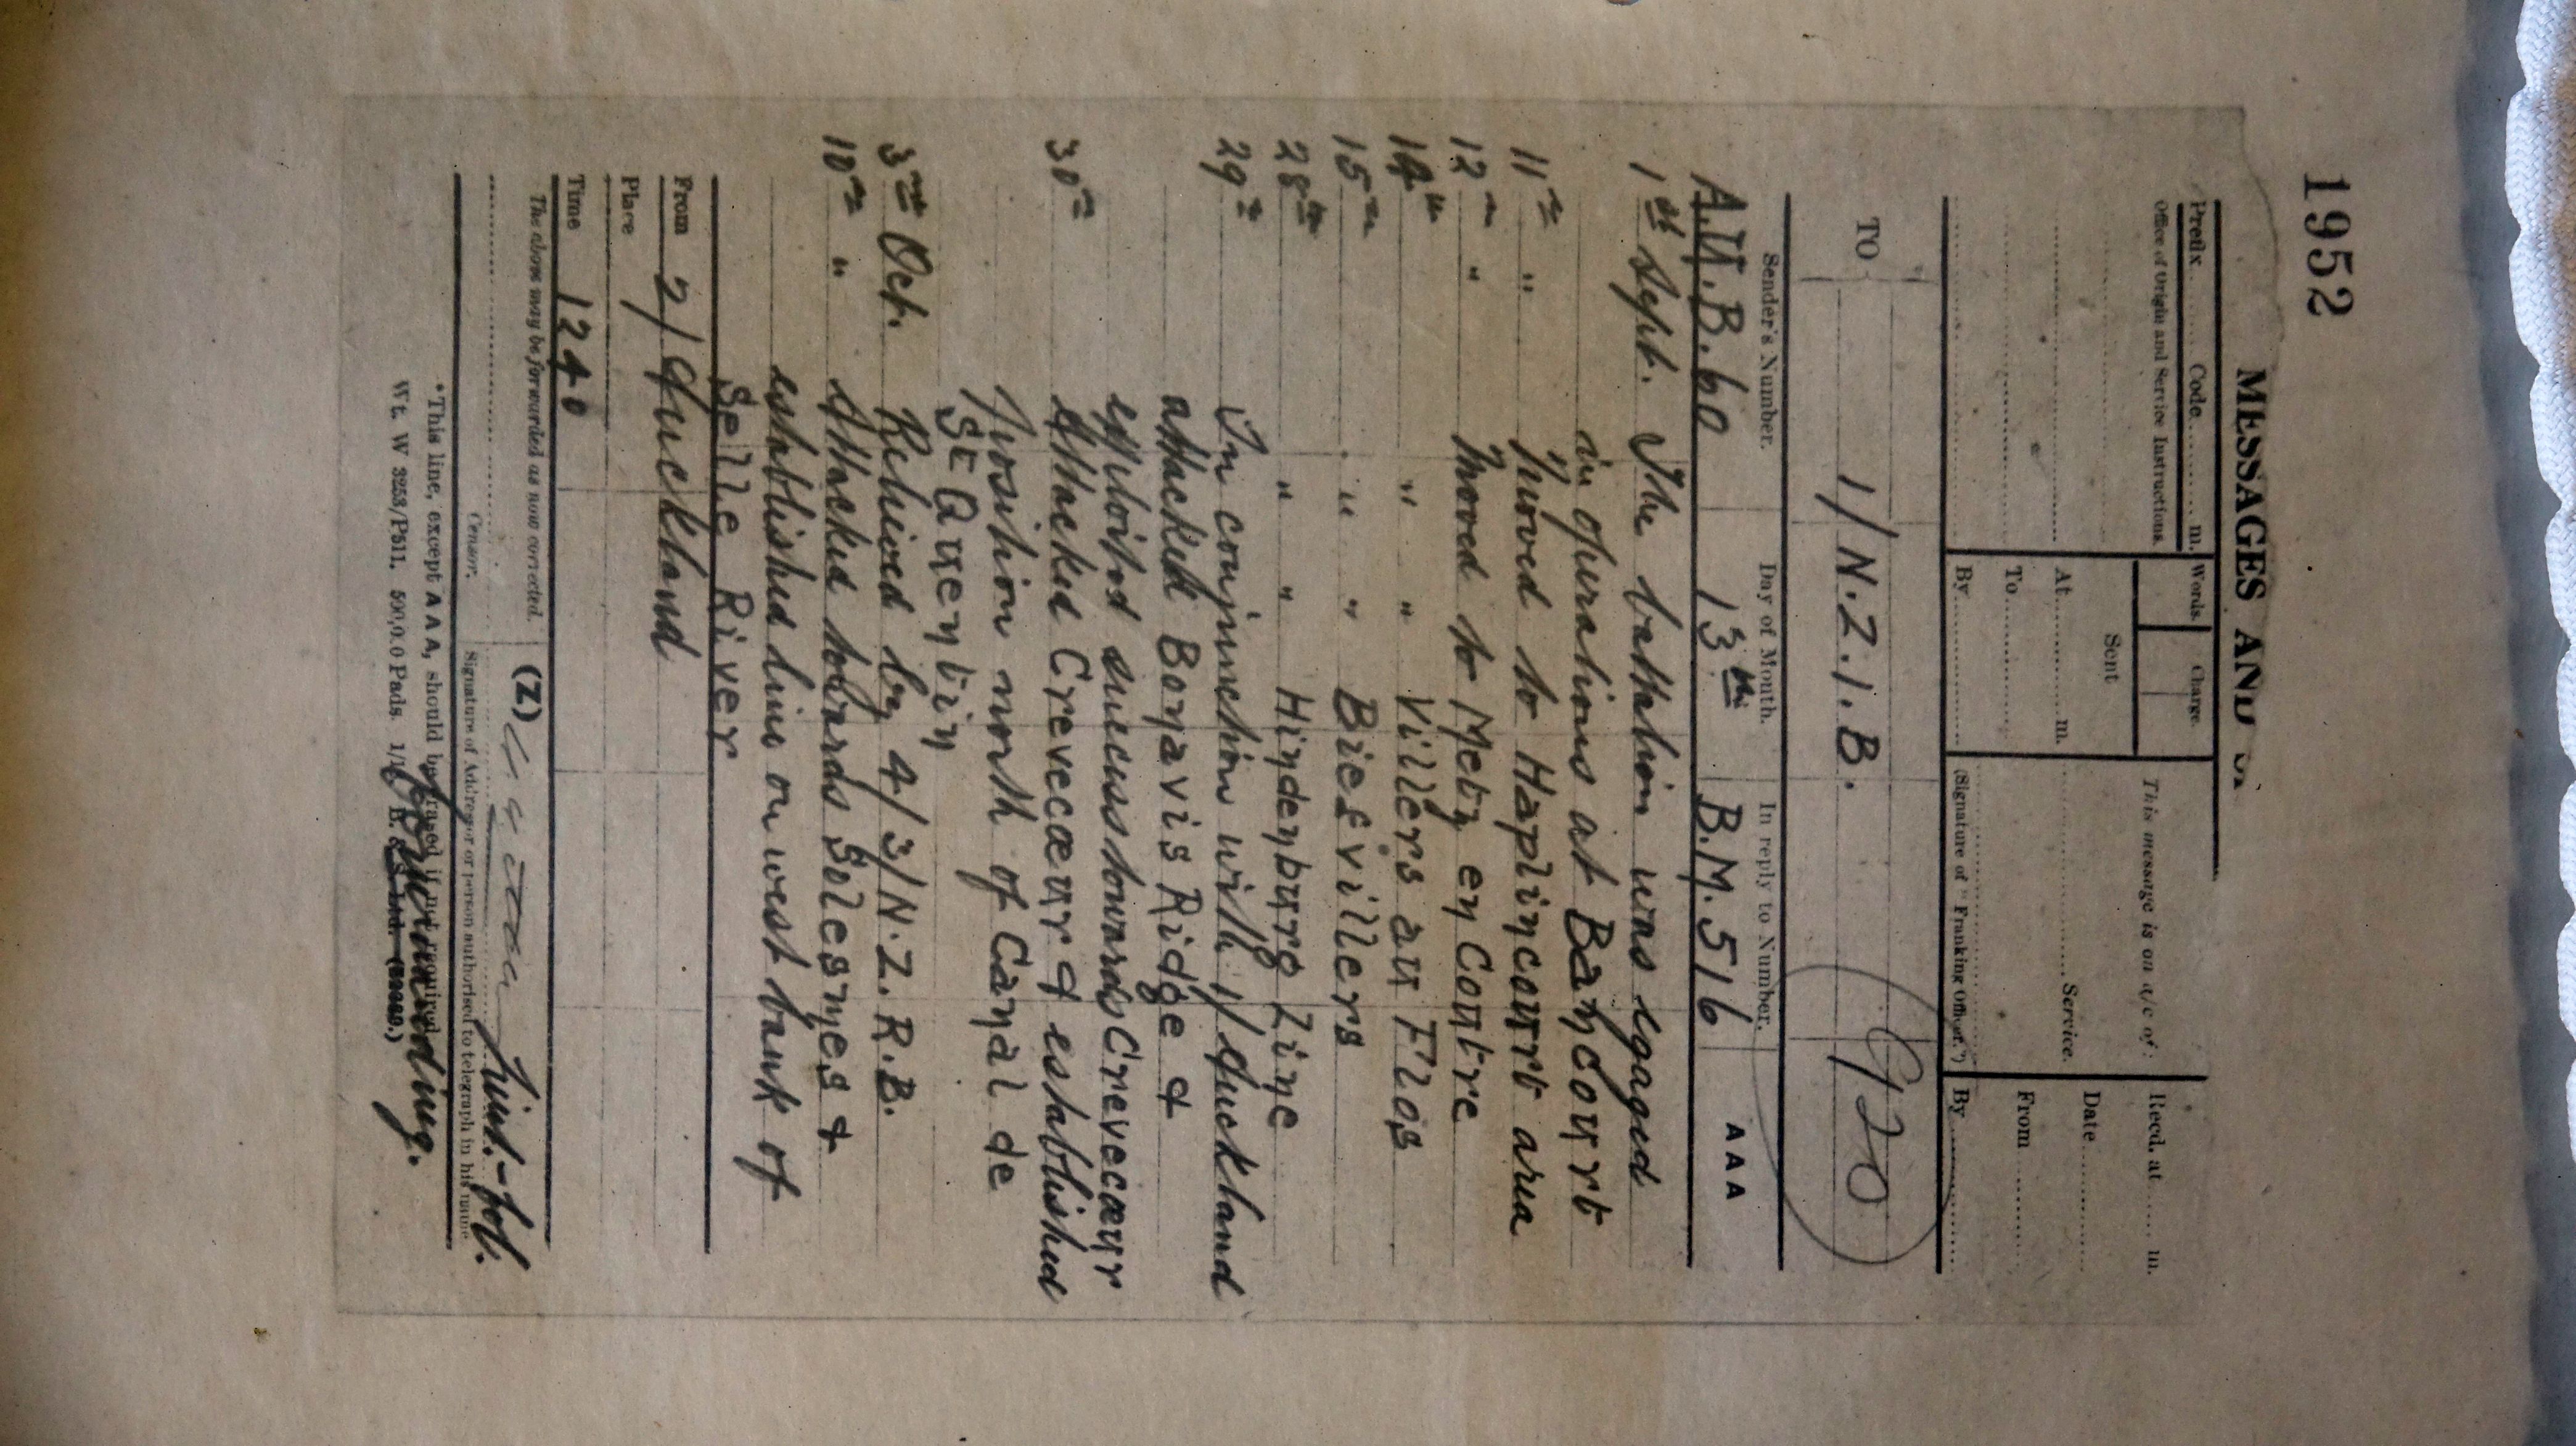 1952
MESSAGES AND
Prefix ........ Code ........ m.
Words.
Charge.
This message is on a/c of:
Recd. at ...... m.
Office of Origin and Service Instructions.
Sent
At ........ m.
To ........
By ........
........ Service.
(Signature of "Franking Officer.")
Date ........
From ........
By ........
TO
1/N.Z.I.B.
G20
Sender's Number.
Day of Month.
In reply to Number.
A.W.B.60
13th
B.M.516
AAA
1st Sept. The battalion was egaged
in operations at Bancourt
11th " Moved to Haplincourt area
12th " Moved to Metz en Coutre
14th " " Villers au Flos
15th " " Biefvillers
28th " " Hindenburg Line
29th In conjunction with 1/Auckland
attacked Bonavis Ridge &
exploited success towards Crevecœur
30th Attacked Crevecœur & established
position north of Canal de
St Quentin
3rd Oct. Relieved by 4/3/N.Z.R.B.
10th " Attacked towards Solesmes &
established line on west bank of
Selle River
From 2/Auckland
Place
Time 1240
The above may be forwarded as now corrected.
(Z)
Lieut.-Col.
Censor.
Signature of Addressor or person authorised to telegraph in his name
Commanding.
*This line, except AAA, should be erased if not required.
Wt. W 3253/P511. 500,000 Pads.